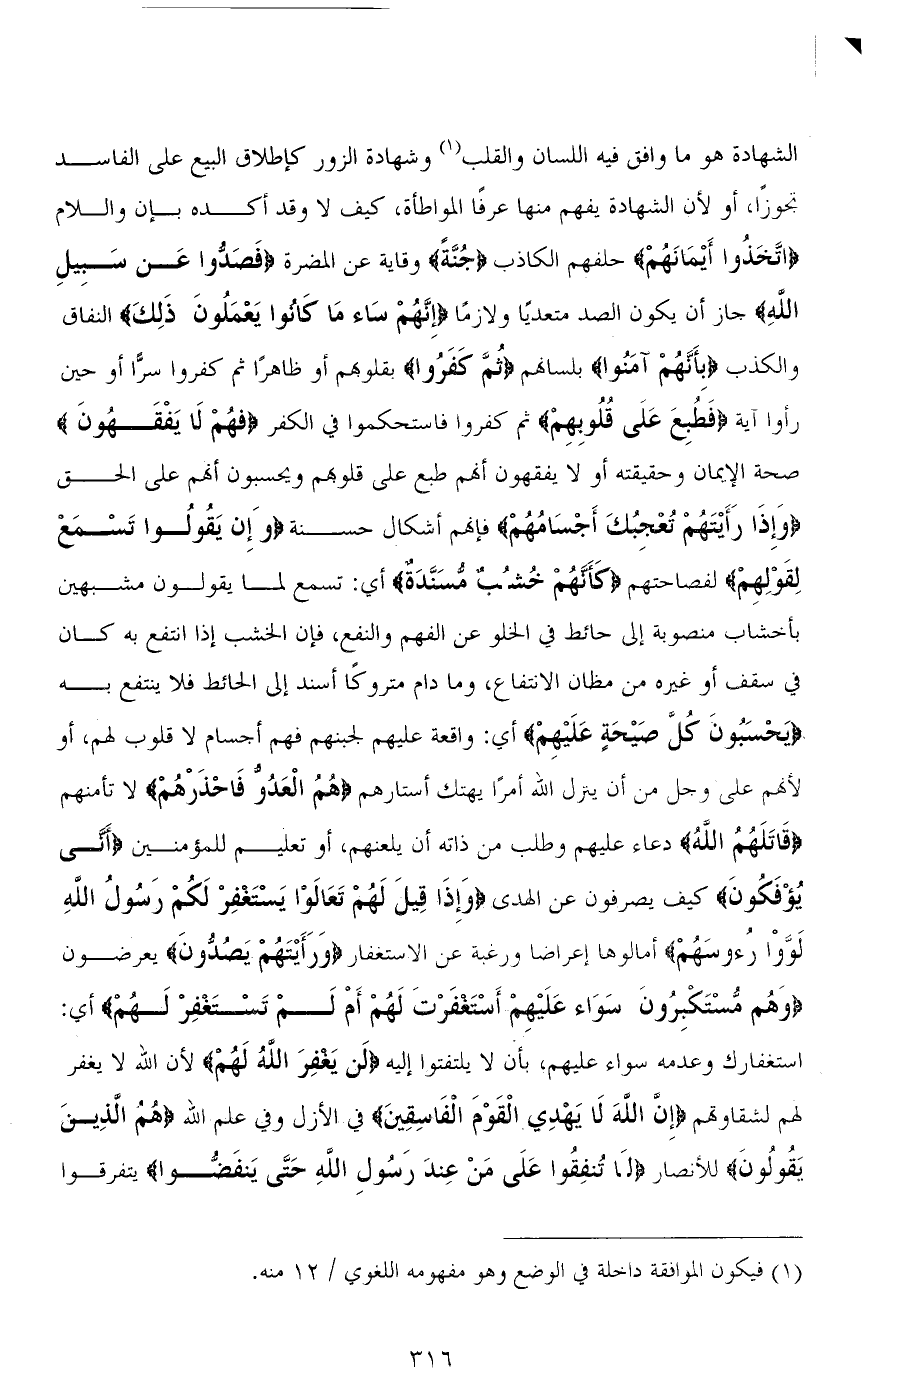 الشهادة هو ما وافق فيه اللسان والقلب(١) وشهادة الزور كإطلاق البيع على الفاسد
تجوزًا، أو لأن الشهادة يفهم منها عرفًا المواطأة، كيف لا وقد أكده بإن واللام
﴿اتَّخَذُوا أَيْمَانَهُمْ﴾ حلفهم الكاذب ﴿جُنَّةً﴾ وقاية عن المضرة ﴿فَصَدُّوا عَن سَبِيلِ
اللَّهِ﴾ جاز أن يكون الصد متعديًا ولازمًا ﴿إِنَّهُمْ سَاء مَا كَانُوا يَعْمَلُونَ ذَلِكَ﴾ النفاق
والكذب ﴿بِأَنَّهُمْ آمَنُوا﴾ بلسانهم ﴿ثُمَّ كَفَرُوا﴾ بقلوبهم أو ظاهرًا ثم كفروا سرًّا أو حين
رأوا آية ﴿فَطُبِعَ عَلَى قُلُوبِهِمْ﴾ ثم كفروا فاستحكموا في الكفر ﴿فَهُمْ لَا يَفْقَهُونَ﴾
صحة الإيمان وحقيقته أو لا يفقهون أنهم طبع على قلوبهم ويحسبون أنهم على الحق
﴿وَإِذَا رَأَيْتَهُمْ تُعْجِبُكَ أَجْسَامُهُمْ﴾ فإنهم أشكال حسنة ﴿وَإِن يَقُولُوا تَسْمَعْ
لِقَوْلِهِمْ﴾ لفصاحتهم ﴿كَأَنَّهُمْ خُشُبٌ مُّسَنَّدَةٌ﴾ أي: تسمع لما يقولون مشبهين
بأخشاب منصوبة إلى حائط في الخلو عن الفهم والنفع، فإن الخشب إذا انتفع به كان
في سقف أو غيره من مظان الانتفاع، وما دام متروكًا أسند إلى الحائط فلا ينتفع به
﴿يَحْسَبُونَ كُلَّ صَيْحَةٍ عَلَيْهِمْ﴾ أي: واقعة عليهم لجبنهم فهم أجسام لا قلوب لهم، أو
لأنهم على وجل من أن ينزل الله أمرًا يهتك أستارهم ﴿هُمُ الْعَدُوُّ فَاحْذَرْهُمْ﴾ لا تأمنهم
﴿قَاتَلَهُمُ اللَّهُ﴾ دعاء عليهم وطلب من ذاته أن يلعنهم، أو تعليم للمؤمنين ﴿أَنَّى
يُؤْفَكُونَ﴾ كيف يصرفون عن الهدى ﴿وَإِذَا قِيلَ لَهُمْ تَعَالَوْا يَسْتَغْفِرْ لَكُمْ رَسُولُ اللَّهِ
لَوَّوْا رُءُوسَهُمْ﴾ أمالوها إعراضا ورغبة عن الاستغفار ﴿وَرَأَيْتَهُمْ يَصُدُّونَ﴾ يعرضون
﴿وَهُم مُّسْتَكْبِرُونَ سَوَاء عَلَيْهِمْ أَسْتَغْفَرْتَ لَهُمْ أَمْ لَمْ تَسْتَغْفِرْ لَهُمْ﴾ أي:
استغفارك وعدمه سواء عليهم، بأن لا يلتفتوا إليه ﴿لَن يَغْفِرَ اللَّهُ لَهُمْ﴾ لأن الله لا يغفر
لهم لشقاوتهم ﴿إِنَّ اللَّهَ لَا يَهْدِي الْقَوْمَ الْفَاسِقِينَ﴾ في الأزل وفي علم الله ﴿هُمُ الَّذِينَ
يَقُولُونَ﴾ للأنصار ﴿لَا تُنفِقُوا عَلَى مَنْ عِندَ رَسُولِ اللَّهِ حَتَّى يَنفَضُّوا﴾ يتفرقوا
(١) فيكون الموافقة داخلة في الوضع وهو مفهومه اللغوي / ١٢ منه.
٣١٦